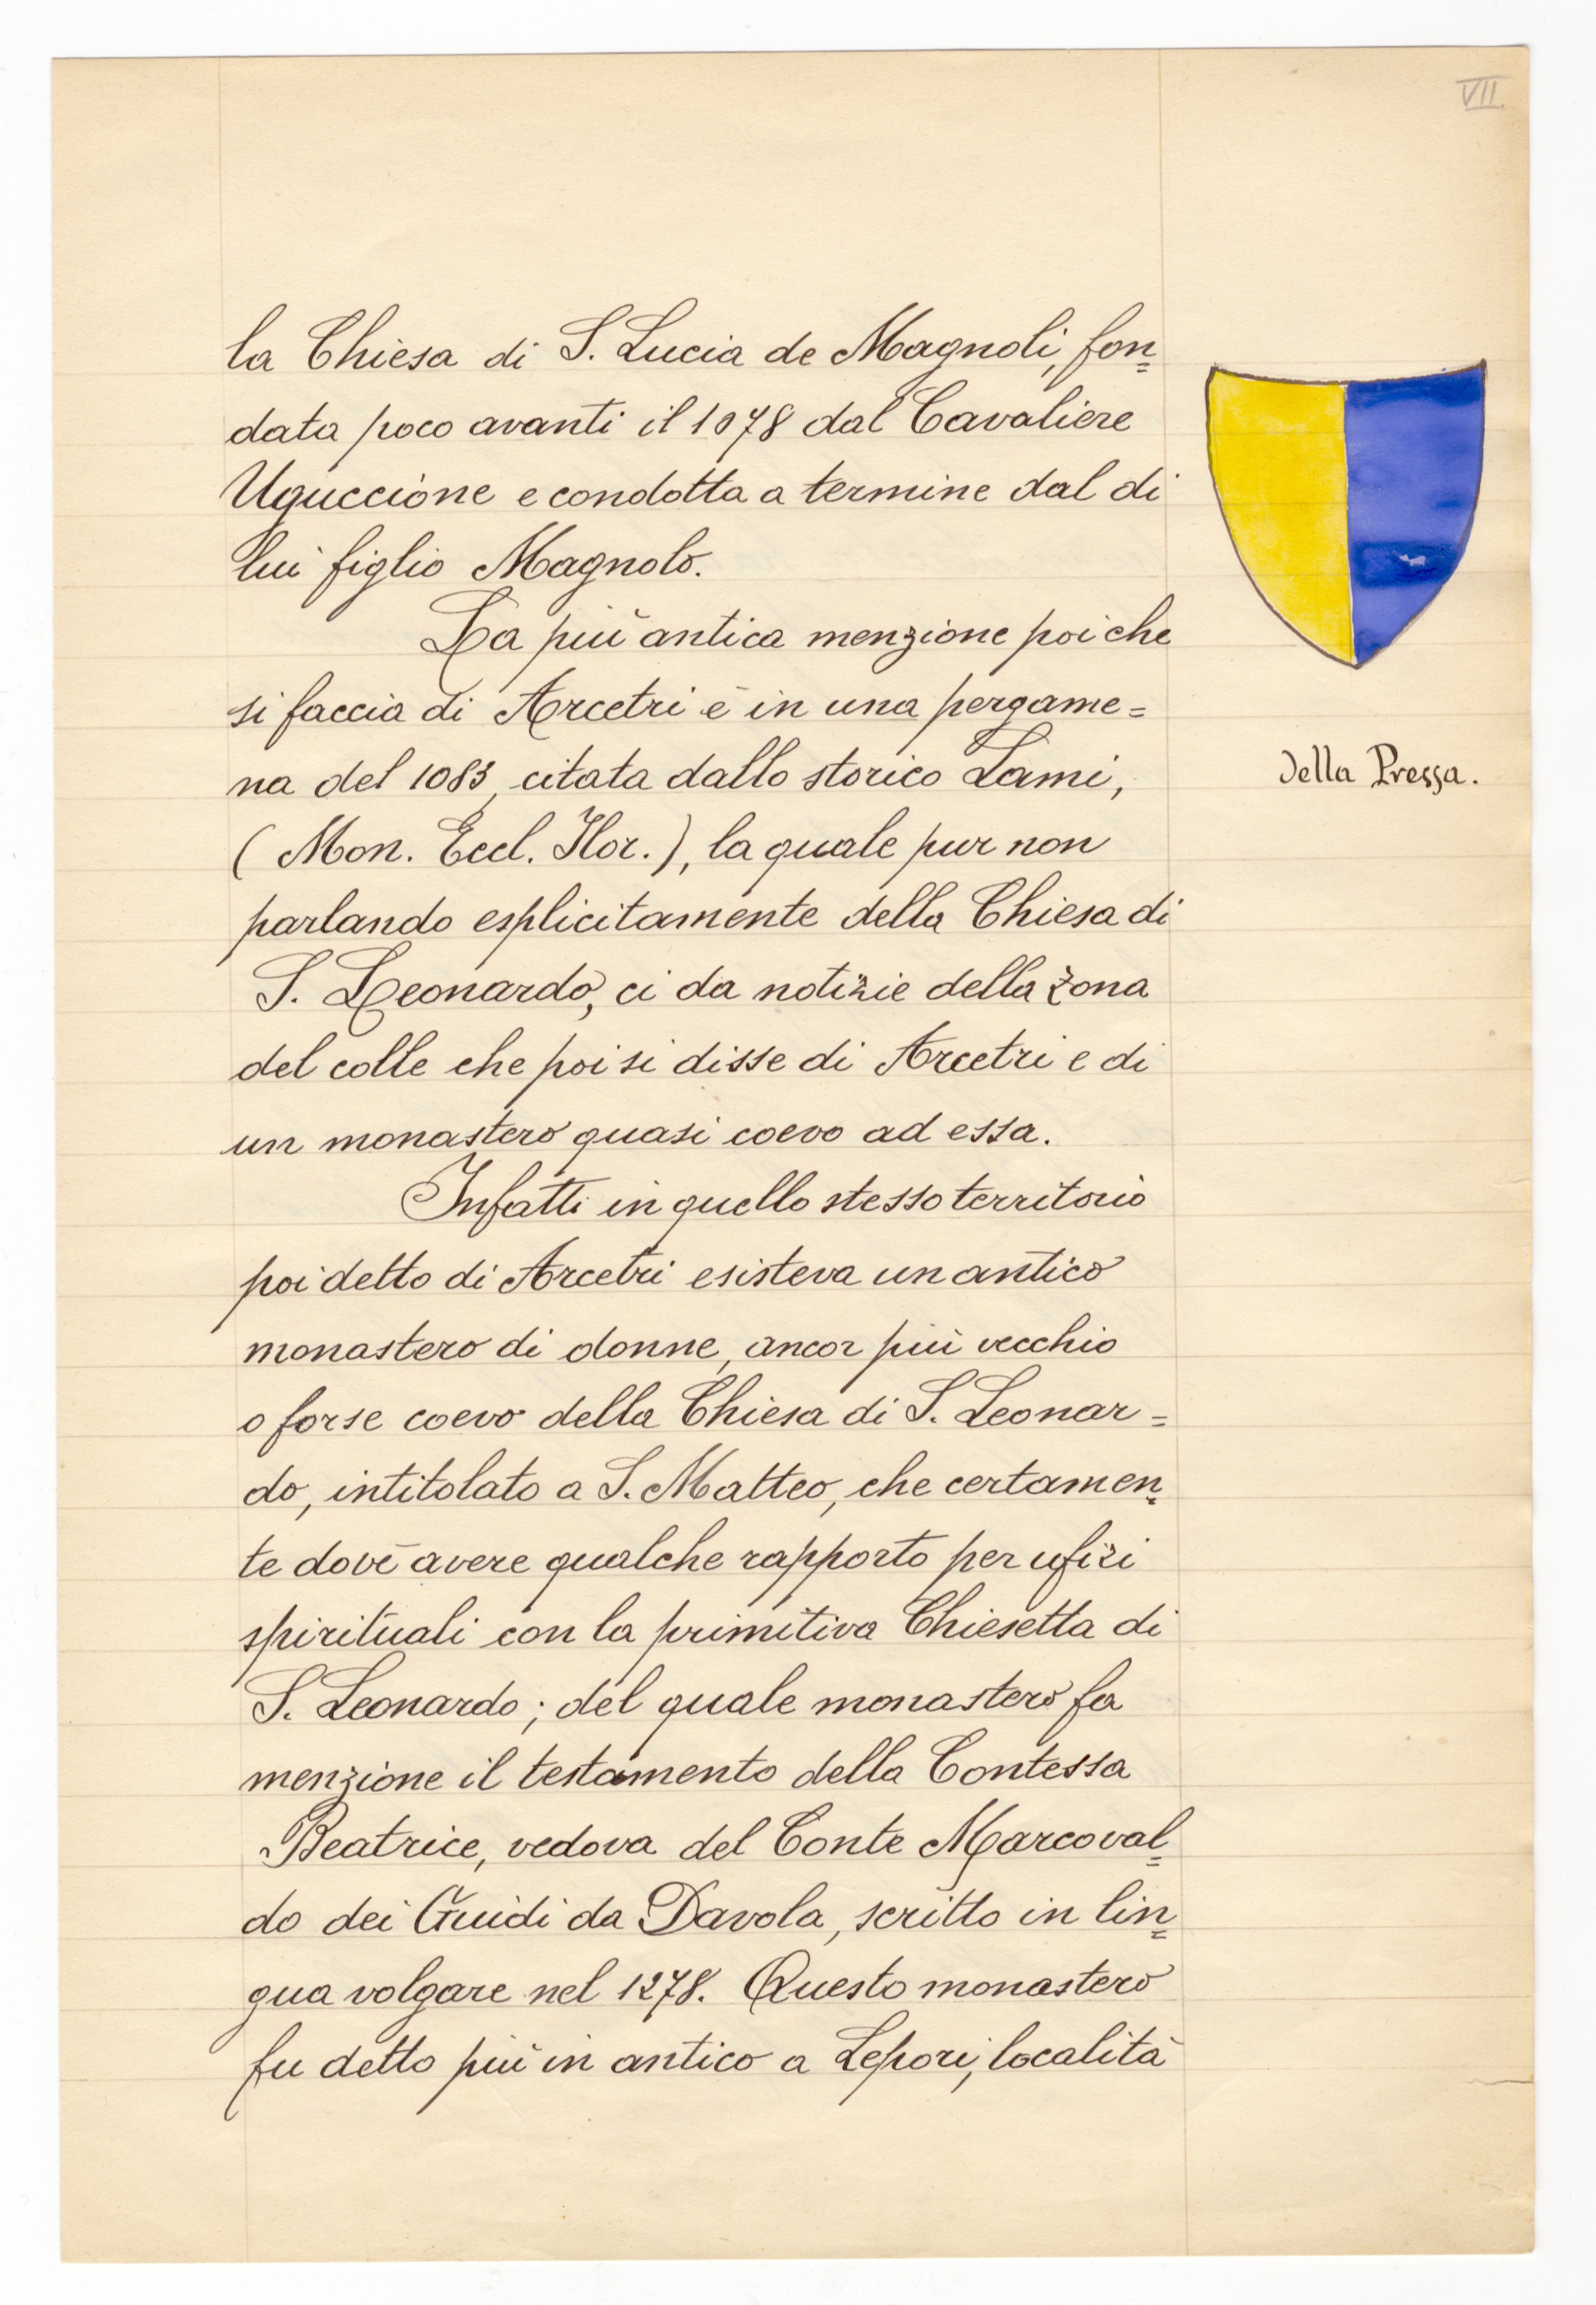 VII.
la Chiesa di S. Lucia de Magnoli, fon=
data poco avanti il 1078 dal Cavaliere
Uguccione e condotta a termine dal di
lui figlio Magnolo.
La più antica menzione poi che
si faccia di Arcetri è in una pergame=
na del 1083, citata dallo storico Lami,
(Mon. Eccl. Flor.), la quale pur non
parlando esplicitamente della Chiesa di
S. Leonardo, ci da notizie della zona
del colle che poi si disse di Arcetri e di
un monastero quasi coevo ad essa.
Infatti in quello stesso territorio
poi detto di Arcetri esisteva un antico
monastero di donne, ancor più vecchio
o forse coevo della Chiesa di S. Leonar=
do, intitolato a S. Matteo, che certamen=
te dovè avere qualche rapporto per ufizi
spirituali con la primitiva Chiesetta di
S. Leonardo; del quale monastero fa
menzione il testamento della Contessa
Beatrice, vedova del Conte Marcoval=
do dei Guidi da Davola, scritto in lin=
gua volgare nel 1278. Questo monastero
fu detto più in antico a Lepori, località
della Pressa.